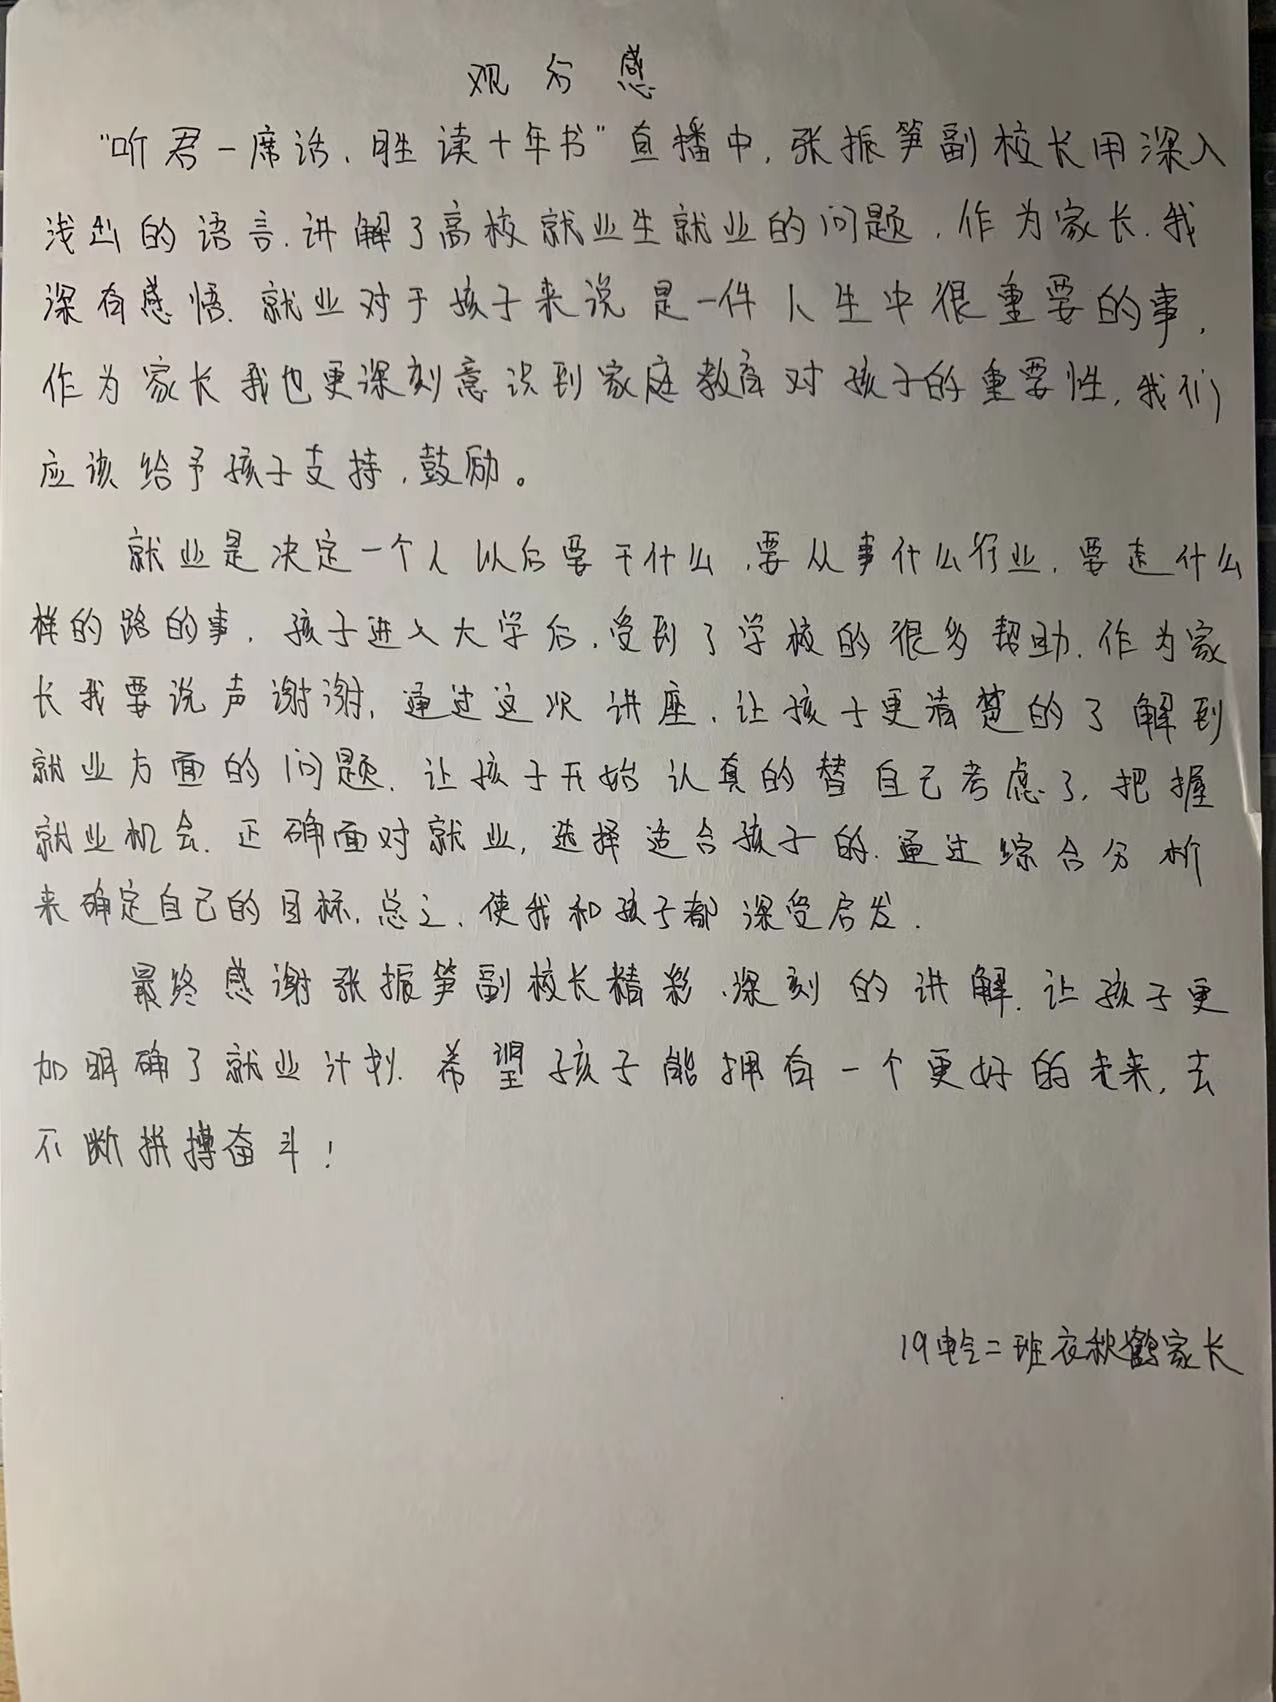 观分感
“听君一席话，胜读十年书”直播中，张振笋副校长用深入
浅出的语言，讲解了高校就业生就业的问题，作为家长，我
深有感悟，就业对于孩子来说是一件人生中很重要的事，
作为家长我也更深刻意识到家庭教育对孩子的重要性，我们
应该给予孩子支持，鼓励。
就业是决定一个人以后要干什么，要从事什么行业，要走什么
样的路的事，孩子进入大学后，受到了学校的很多帮助，作为家
长我要说声谢谢，通过这次讲座，让孩子更清楚的了解到
就业方面的问题，让孩子开始认真的替自己考虑了，把握
就业机会，正确面对就业，选择适合孩子的，通过综合分析
来确定自己的目标，总之，使我和孩子都深受启发．
最终感谢张振笋副校长精彩、深刻的讲解，让孩子更
加明确了就业计划．希望孩子能拥有一个更好的未来，去
不断拼搏奋斗！
19电气二班衣秋鹤家长